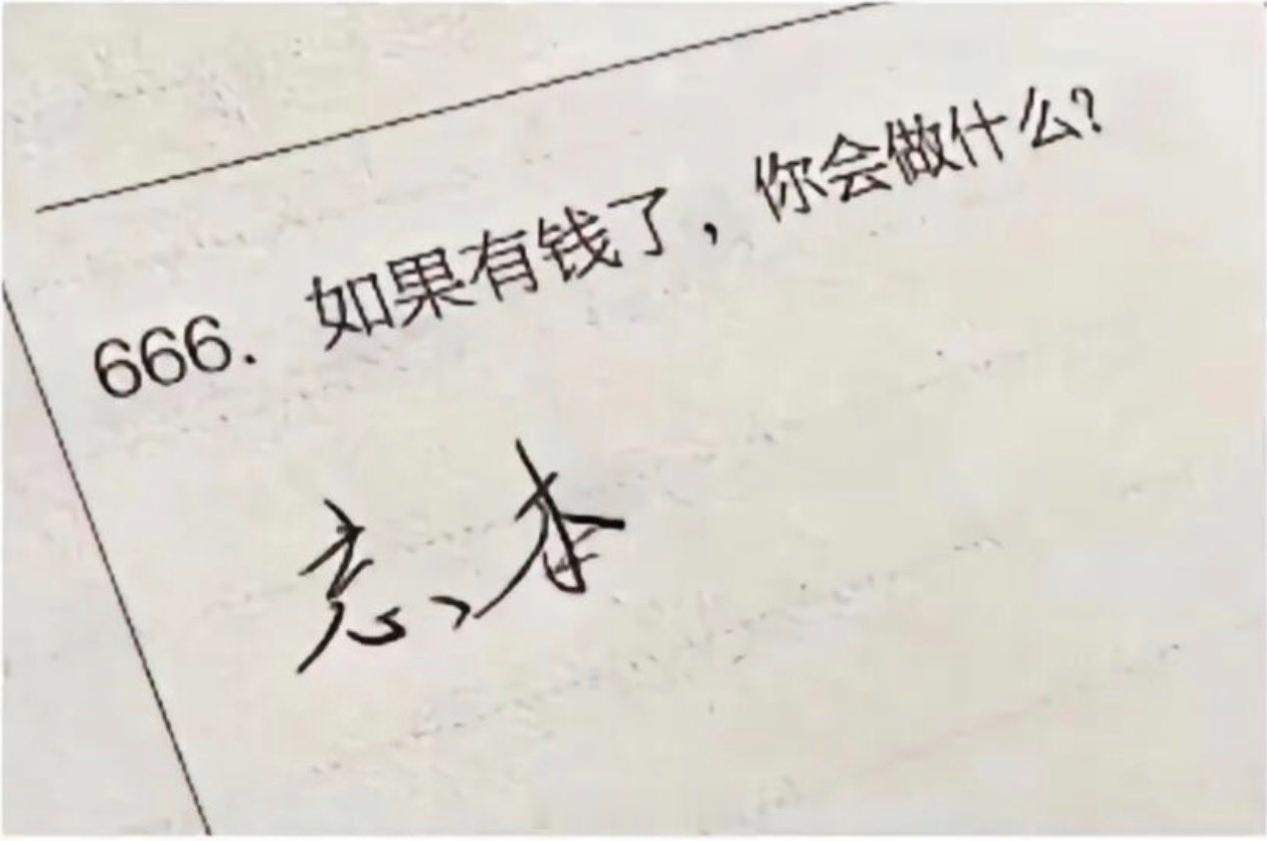 666. 如果有钱了，你会做什么?
忘本